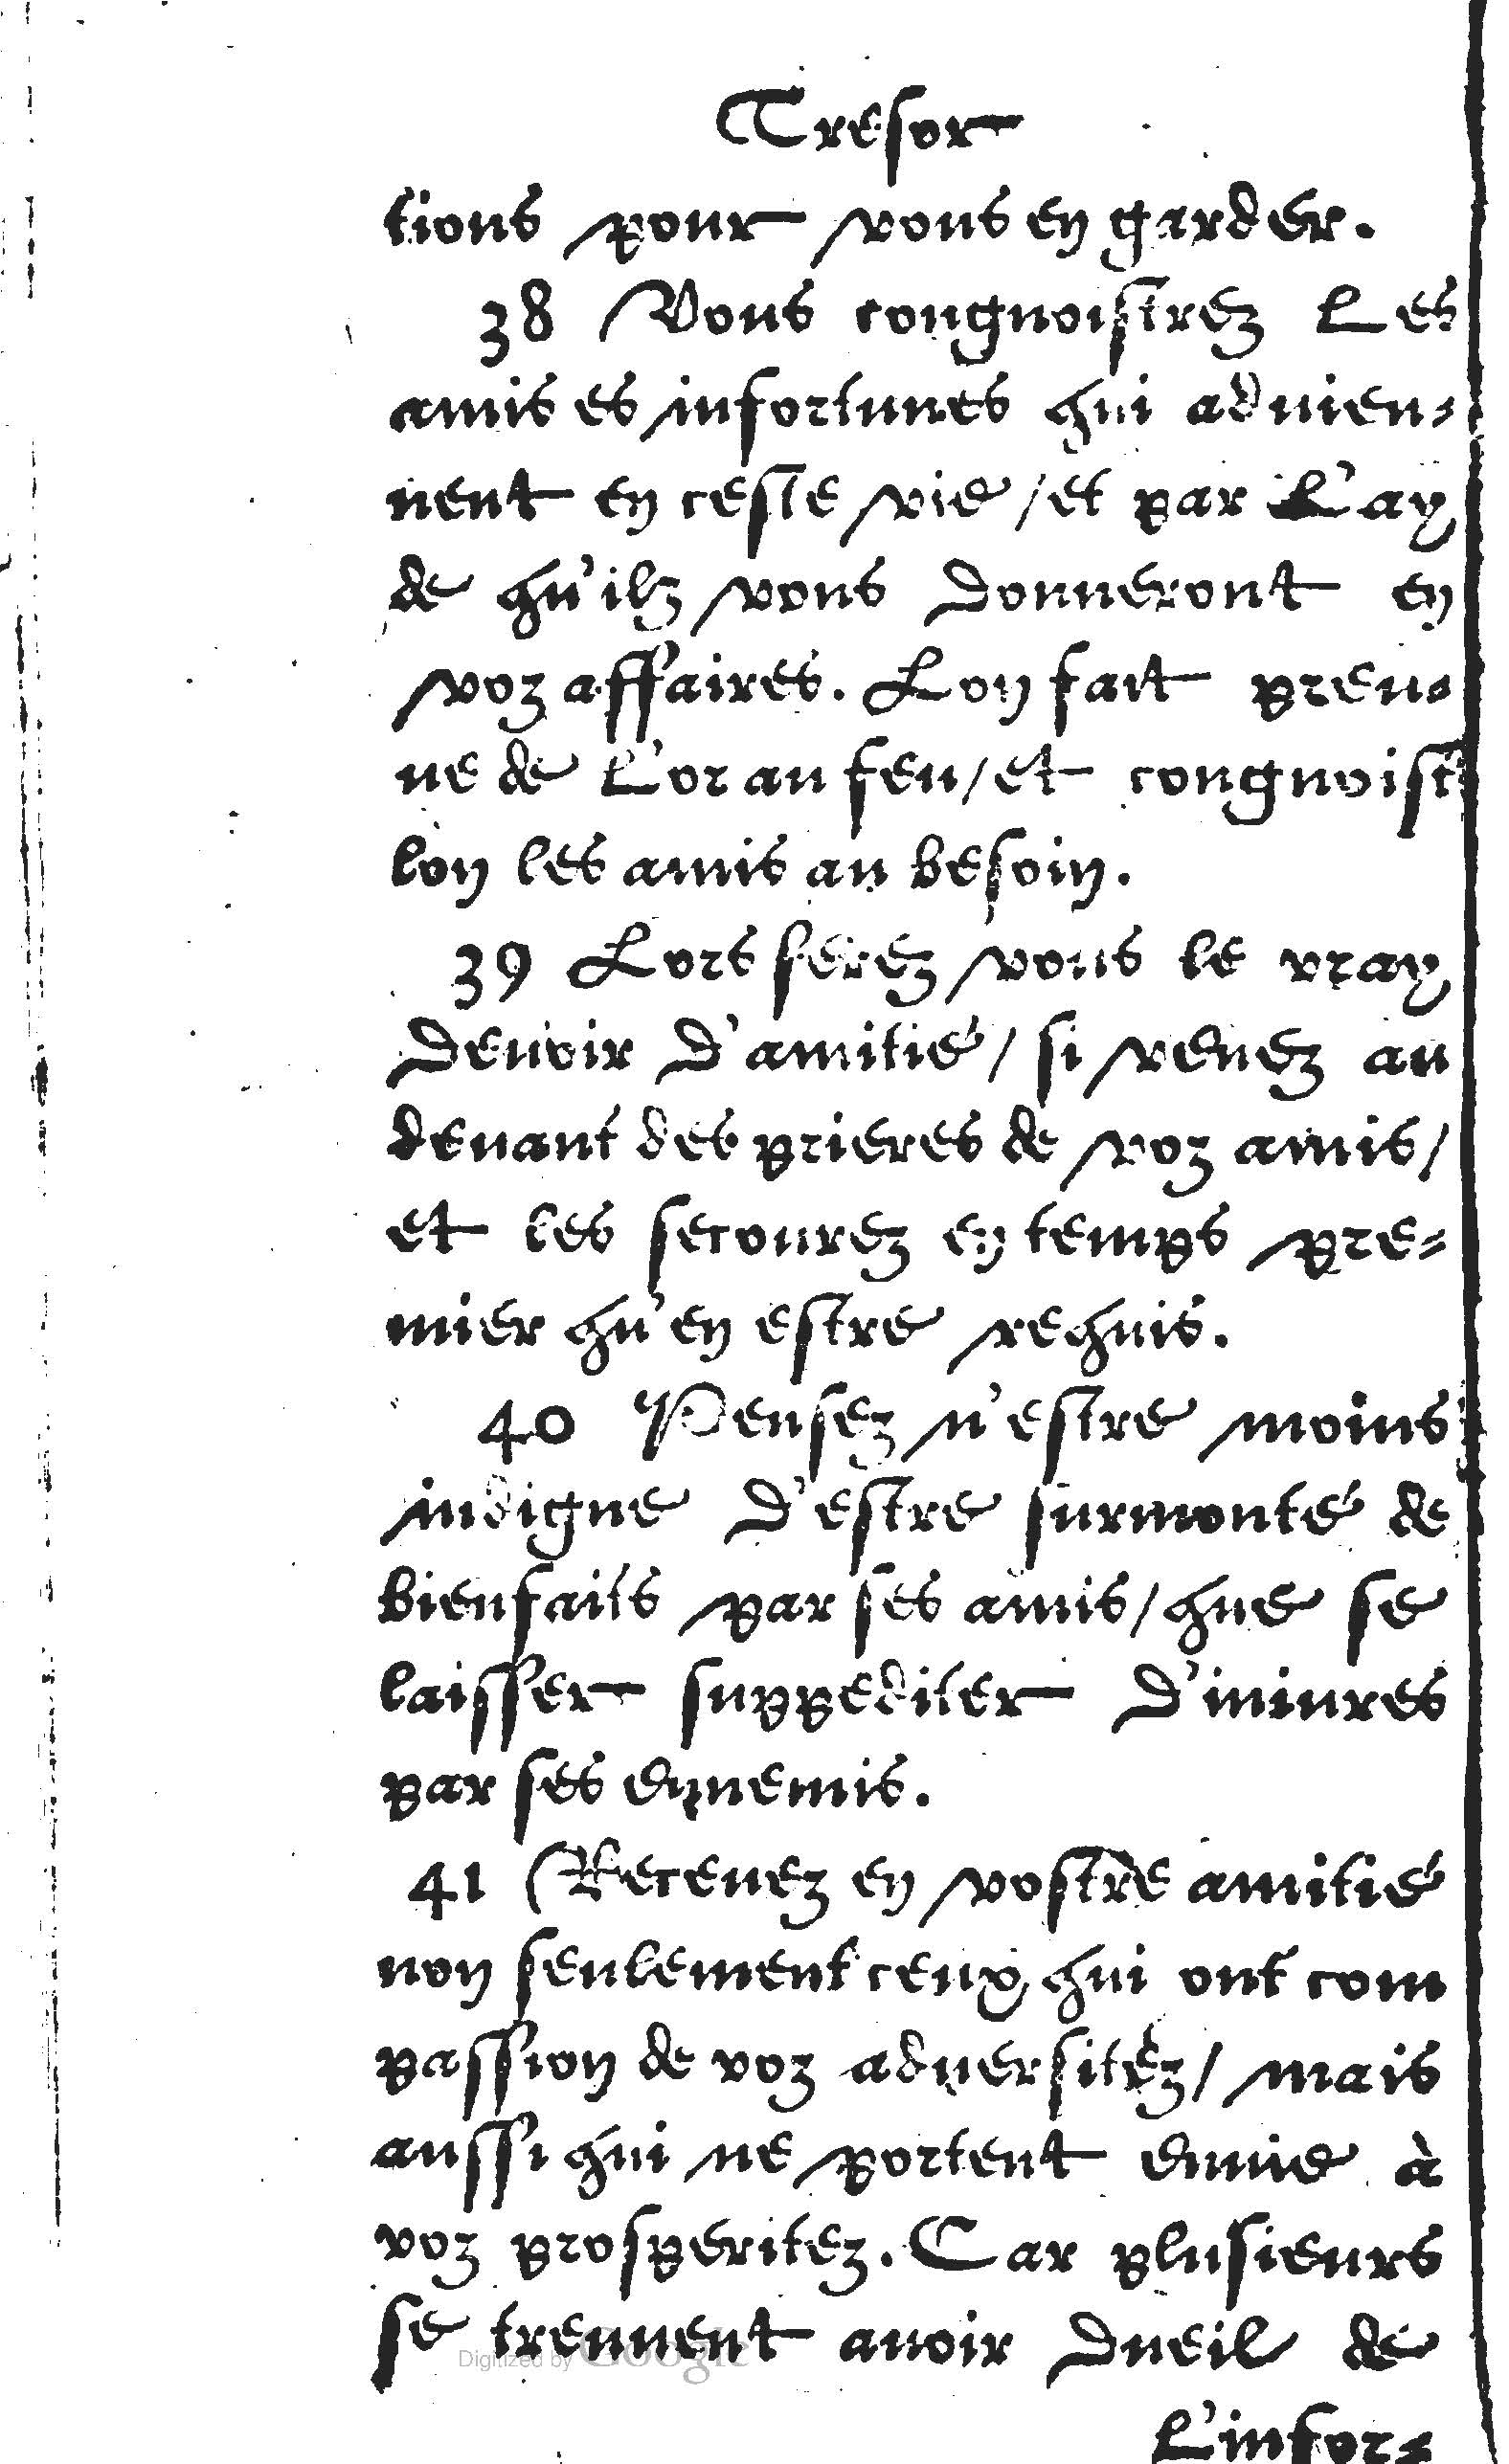 Tresor
tions pour vous en garder.
38 Vous congnoistrez Les
amis es infortunes qui aduien-
nent en ceste vie / et par L'ay
de qu'ilz vous donneront en
voz affaires. Lon fait preu-
ue de L'or au feu / et congnoist
lon les amis au besoin.
39 Lors ferez vous le vray
deuoir d'amitié / si venez au
deuant des prieres de voz amis /
et les secourez en temps pre-
mier qu'en estre requis.
40 Pensez n'estre moins
indigne d'estre surmonté de
bienfaits par ses amis / que se
laisser suppediter d'iniures
par ses ennemis.
41 Receuez en vostre amitié
non seulement ceux qui ont com
passion de voz aduersitéz / mais
aussi qui ne portent enuie à
voz prosperitez. Car plusieurs
se treuuent auoir dueil de
L'infor-
Digitized by Google